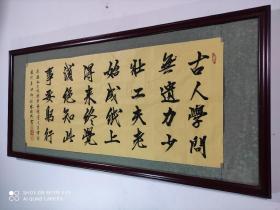 古人學問
無遺力少
壯工夫老
始成紙上
得來終覺
淺絕知此
事要躬行